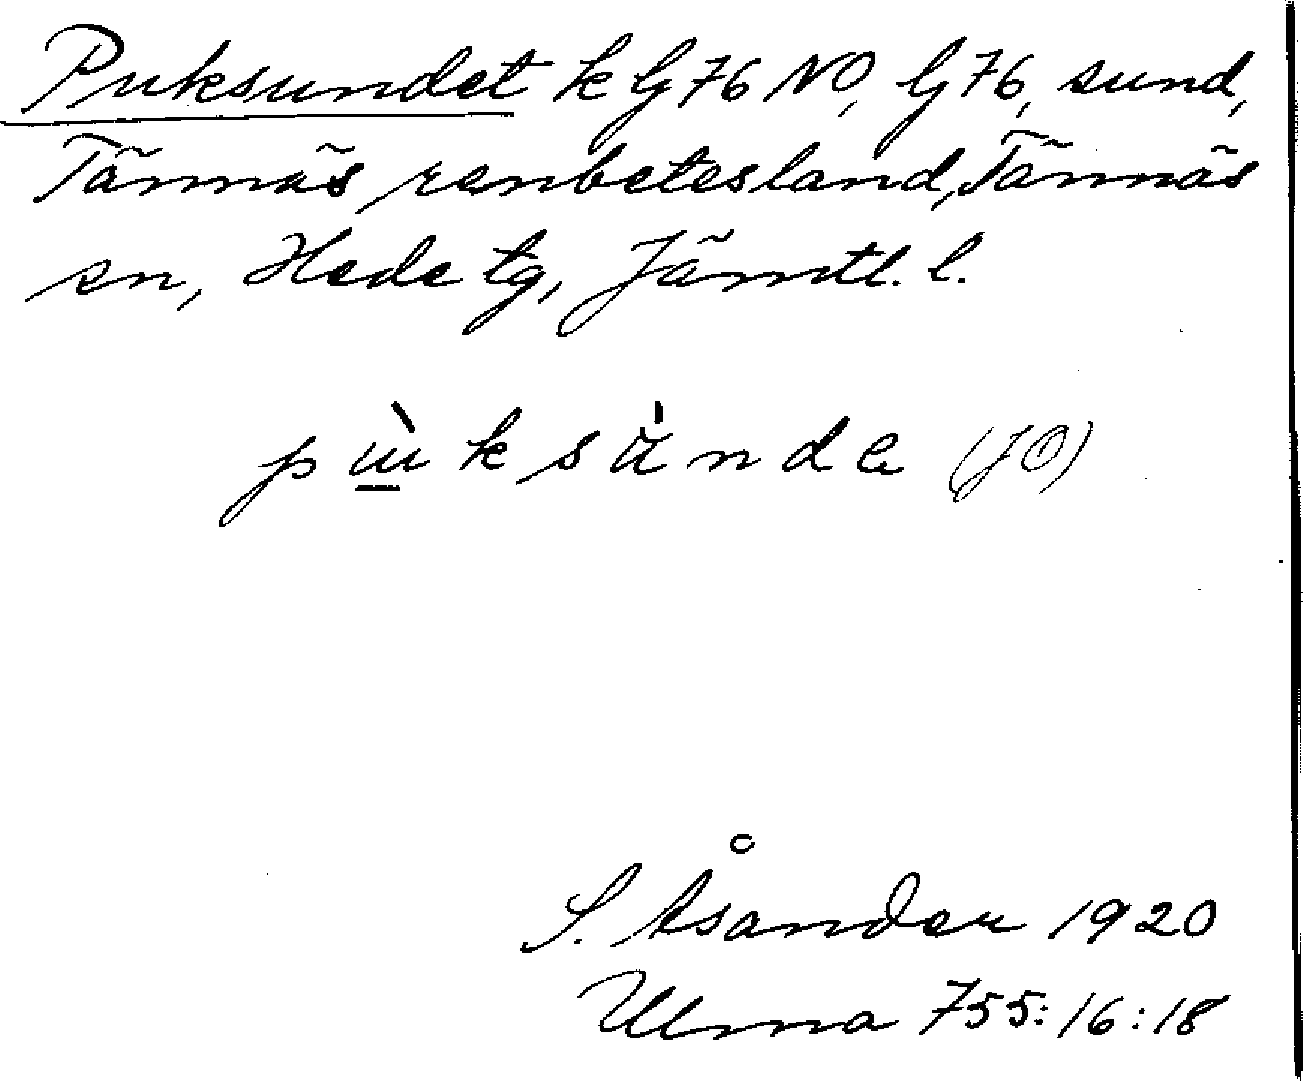 Puksundet k G76 NO, G76, sund,
Tännäs renbetesland, Tännäs
sn, Hede tg, Jämtl. l.
(JO)
S. Åsander 1920
Ulma 755:16:18